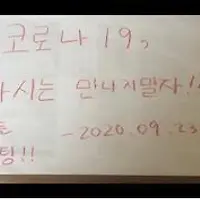 코로나19,
다시는 만나지말자!
- 2020.09.23
팅!!